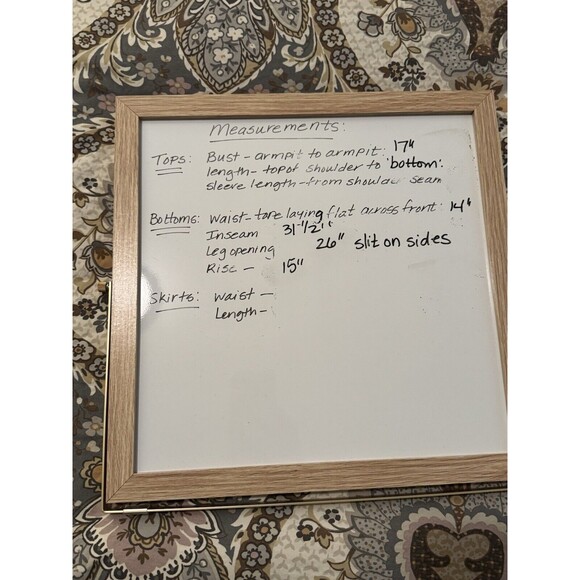 Measurements:
Tops: Bust - armpit to armpit: 17"
length - top of shoulder to bottom:
sleeve length - from shoulder seam
Bottoms: Waist - laying flat across front: 14"
Inseam 31-1/2"
Leg opening 26" slit on sides
Rise - 15"
Skirts: Waist -
Length -